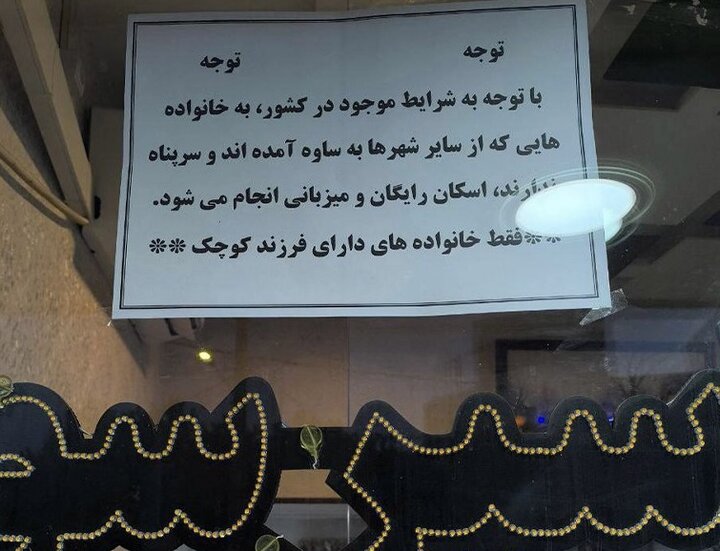 توجه توجه
با توجه به شرایط موجود در کشور، به خانواده
هایی که از سایر شهرها به ساوه آمده اند و سرپناه
ندارند، اسکان رایگان و میزبانی انجام می شود.
**فقط خانواده های دارای فرزند کوچک **